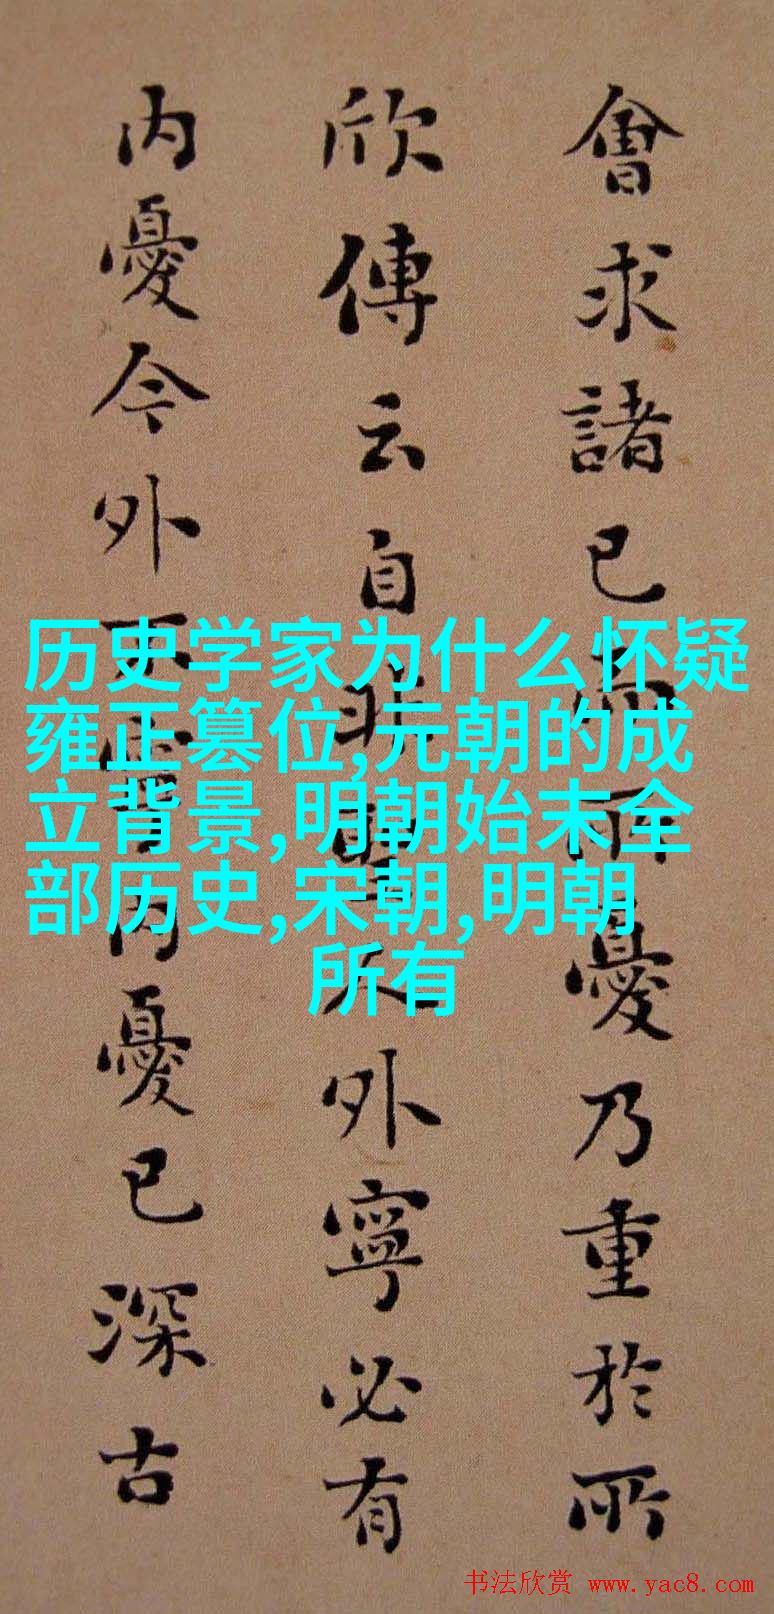 會求諸已而所憂乃重於所
欣傳云自非聖人外寧必有
内憂今外不寧内憂已深古
历史学家为什么怀疑
雍正篡位,元朝的成
立背景,明朝始末全
部历史,宋朝,明朝
所有
书法欣赏 www.yac8.com